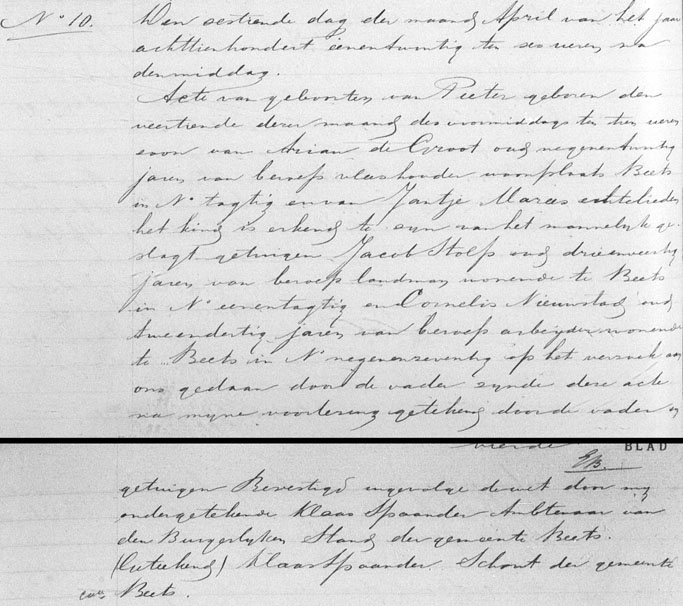 N° 10.
Den sestiende dag der maand April van het jaar
achttienhondert eenentwintig ten ses uren na
denmiddag.
Acte van geboorten van Pieter geboren den
veertiende dezer maand des voormiddags ten tien uren
zoon van Arian de Groot oud negenentwintig
jaren van beroep vleeshouder woonplaats Beets
in N° tagtig en van Jantje Marees echtelieden
het kind is erkend te zyn van het mannelyk ge-
slagt getuigen Jacob Stolp oud drieenveertig
jaren van beroep landman wonende te Beets
in N° eenentagtig en Cornelis Nieuwstad oud
tweendertig jaren van beroep arbeyder wonende
te Beets in N° negenenzeventig op het versoek aan
ons gedaan door de vader zynde deze acte
na myne voorlezing getekend door de vader en
vierde BLAD
getuigen Bevestigd ingevolge de wet door my
ondergetekende Klaas Spaander Ambtenaar van
den Burgerlyken Stand der gemeente Beets.
(Getekend) Klaas Spaander Schout der gemeente
Beets.